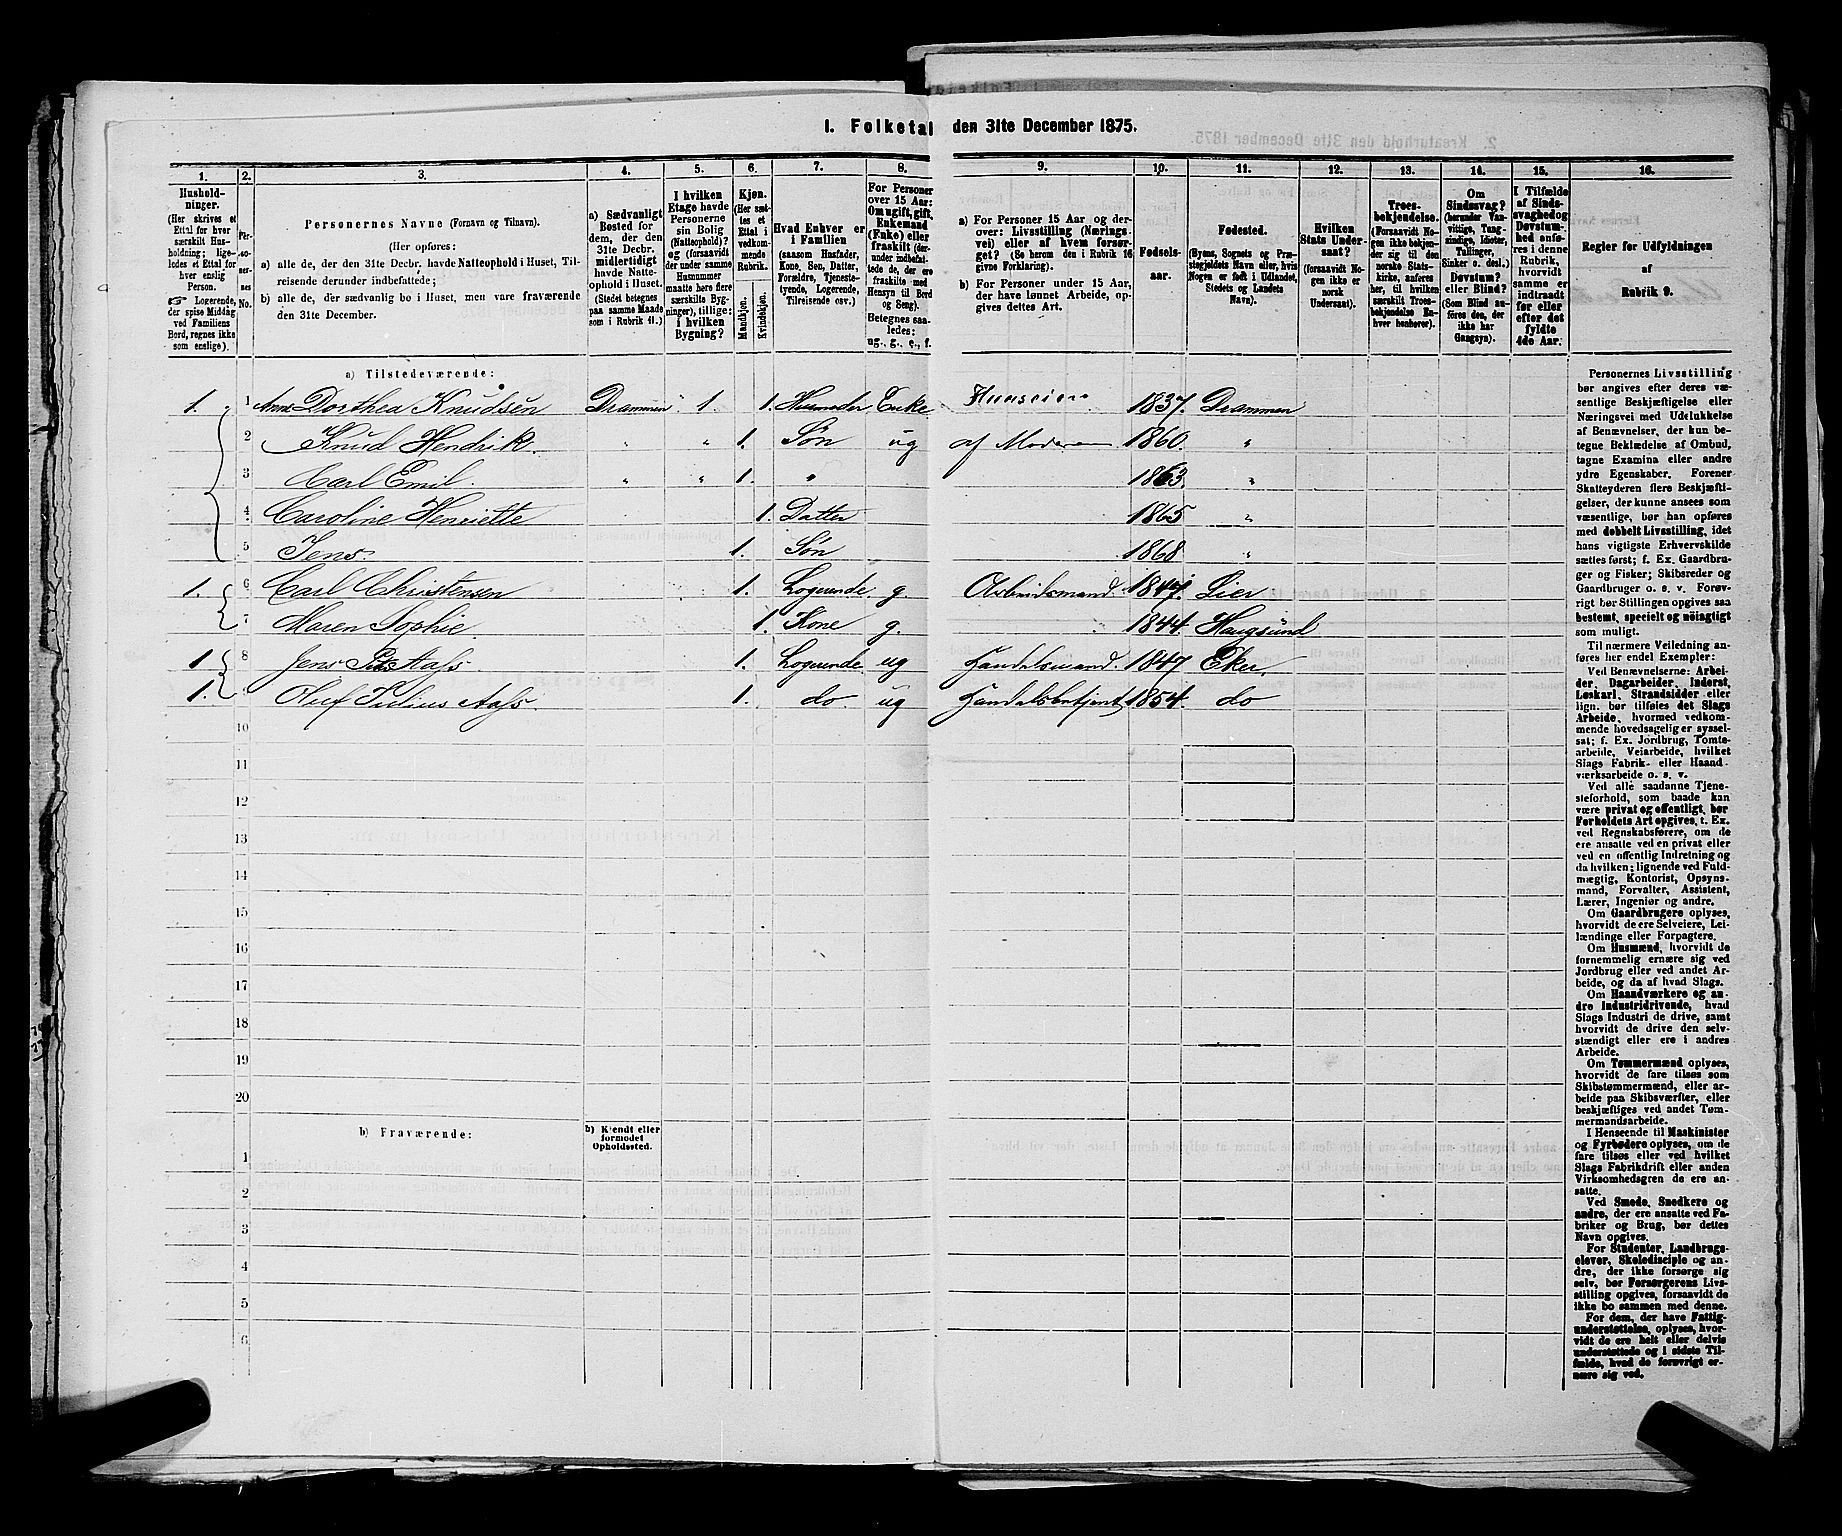 1. Folketal den 31te December 1875.
1. 2. 3. 4. 5. 6. 7. 8. 9. 10. 11. 12. 13. 14. 15. 16.
Hushold-
ninger.
(Her skrives et
Ettal for hver
særskilt Hus-
holdning; lige-
ledes et Ettal for
hver enslig
Person.
☞ Logerende,
der spise Middag
ved Familiens
Bord, regnes ikke
som enslige).
Per-
so-
ner-
nes
No.
Personernes Navne (Fornavn og Tilnavn).
(Her opføres:
a) alle de, der den 31te Decbr. havde Natteophold i Huset, Til-
reisende derunder indbefattede;
b) alle de, der sædvanlig bo i Huset, men vare fraværende
den 31te December.
a) Sædvanligt
Bosted for
dem, der den
31te Decbr.
midlertidigt
havde Natte-
ophold i Huset.
(Stedet betegnes
paa samme Maade
som i Rubrik 11.)
I hvilken
Etage havde
Personerne
sin Bolig
(Natteophold)?
og (forsaavidt
der under samme
Husnummer
maatte høre flere
særskilte Byg-
ninger), tillige:
i hvilken
Bygning?
Kjøn.
(Her sæt-
tes et
Ettal i
vedkom-
mende
Rubrik.
Mandkjøn.
Kvindekjøn.
Hvad Enhver er
i Familien
(saasom Husfader,
Kone, Søn, Datter,
Forældre, Tjeneste-
tyende, Logerende,
Tilreisende osv.)
For Personer
over 15 Aar:
Om ugift, gift,
Enkemand
(Enke) eller
fraskilt (der-
under indbefat-
tede de, der ere
fraskilte med
Hensyn til Bord
og Seng).
Betegnes saa-
ledes:
ug., g., e., f.
a) For Personer 15 Aar og der-
over: Livsstilling (Nærings-
vei) eller af hvem forsør-
get? (Se herom den i Rubrik 16
givne Forklaring).
b) For Personer under 15 Aar,
der have lønnet Arbeide, op-
gives dettes Art.
Fødsels-
aar.
Fødested.
(Byens, Sognets og Præ-
stegjeldets Navn eller, hvis
Nogen er født i Udlandet,
Stedets og Landets
Navn).
Hvilken
Stats Under-
saat?
(forsaavidt No-
gen ikke er
norsk
Undersaat).
Troes-
bekjendelse.
(Forsaavidt No-
gen ikke bekjen-
der sig til den
norske Stats-
kirke, anføres
her, til hvilken
særskilt Troes-
bekjendelse En-
hver henhører).
Om
Sindssvag?
(herunder Van-
vittige, Tung-
sindige, Idioter,
Tullinger,
Sinker o. desl.)
Døvstum?
eller Blind?
(Som Blind an-
føres den, der
ikke har
Gangsyn).
I Tilfælde
af Sinds-
svaghed og
Døvstum-
hed anfø-
res i denne
Rubrik,
hvorvidt
samme er
indtraadt
før eller
efter det
fyldte
4de Aar.
Regler for Udfyldningen
af
Rubrik 9.
a) Tilstedeværende:
1. 1 Anne Dorthea Knudsen Drammen 1. 1. Husmoder Enke Huuseier 1837. Drammen
2 Knud Hendrik. " " 1. Søn ug af Moderen 1860. "
3 Carl Emil. " " 1. " 1863. "
4 Caroline Henriette 1. Datter 1865 "
5 Jens. 1. Søn 1868 "
1. 6 Carl Christensen 1. Logerende g. Arbeidsmand 1847. Lier
7 Maren Sophie. 1. Kone g. 1844. Hougsund
1. 8 Jens Aass. 1. Logerende ug Handelsmand. 1847 Eker.
1. 9 Oluf Julius Aass. 1. do ug Handelsbetjent 1854. do
10
11
12
13
14
15
16
17
18
19
20
b) Fraværende:
b) Kjendt eller
formodet
Opholdssted.
1
2
3
4
5
6
Personernes Livsstilling
bør angives efter deres væ-
sentlige Beskjæftigelse eller
Næringsvei med Udelukkelse
af Benævnelser, der kun be-
tegne Beklædelse af Ombud,
tagne Examina eller andre
ydre Egenskaber. Forener
Skatteyderen flere Beskjæfti-
gelser, der kunne ansees som
væsentlige, bør han opføres
med dobbelt Livsstilling, idet
hans vigtigste Erhvervskilde
sættes først; f. Ex. Gaardbru-
ger og Fisker; Skibsreder og
Gaardbruger o. s. v. Forøv-
rigt bør Stillingen opgives saa
bestemt, specielt og nøiagtigt
som muligt.
Til nærmere Veiledning an-
føres her endel Exempler:
Ved Benævnelserne: Arbei-
der, Dagarbeider, Inderst,
Løskarl, Strandsidder eller
lign. bør tilføies det Slags
Arbeide, hvormed vedkom-
mende hovedsagelig er syssel-
sat; f. Ex. Jordbrug, Tomte-
arbeide, Veiarbeide, hvilket
Slags Fabrik- eller Haand-
værksarbeide o. s. v.
Ved alle saadanne Tjene-
steforhold, som baade kan
være privat og offentligt, bør
Forholdets Art opgives, t. Ex.
ved Regnskabsførere, om de
ere ansatte ved en privat eller
ved en offentlig Indretning og
da hvilken; lignende ved Fuld-
mægtig, Kontorist, Opsyns-
mand, Forvalter, Assistent,
Lærer, Ingeniør og andre.
Om Gaardbrugere oplyses,
hvorvidt de ere Selveiere, Lei-
lændinge eller Forpagtere.
Om Husmænd, hvorvidt de
fornemmelig ernære sig ved
Jordbrug eller ved andet Ar-
beide, og da af hvad Slags.
Om Haandværkere og an-
dre Industridrivende, hvad
Slags Industri de drive, samt
hvorvidt de drive den selv-
stændigt eller ere i andres
Arbeide.
Om Tømmermænd oplyses,
hvorvidt de fare tilsøs som
Skibstømmermænd, eller ar-
beide paa Skibsværfter, eller
beskjæftiges ved andet Tøm-
mermandsarbeide.
I Henseende til Maskinister
og Fyrbødere oplyses, om de
fare tilsøs eller ved hvilket
Slags Fabrikdrift eller anden
Virksomhedsgren de ere an-
satte.
Ved Smede, Snedkere og
andre, der ere ansatte ved Fa-
briker og Brug, bør dettes
Navn opgives.
For Studenter, Landbrugs-
elever, Skoledisciple og an-
dre, der ikke forsørge sig
selv, bør Forsørgerens Livs-
stilling opgives, forsaavidt de
ikke bo sammen med denne.
For dem, der have Fattig-
understøttelse, oplyses, hvor-
vidt de ere helt eller delvis
understøttede og i sidste Til-
fælde, hvad de forøvrigt er-
nære sig ved.